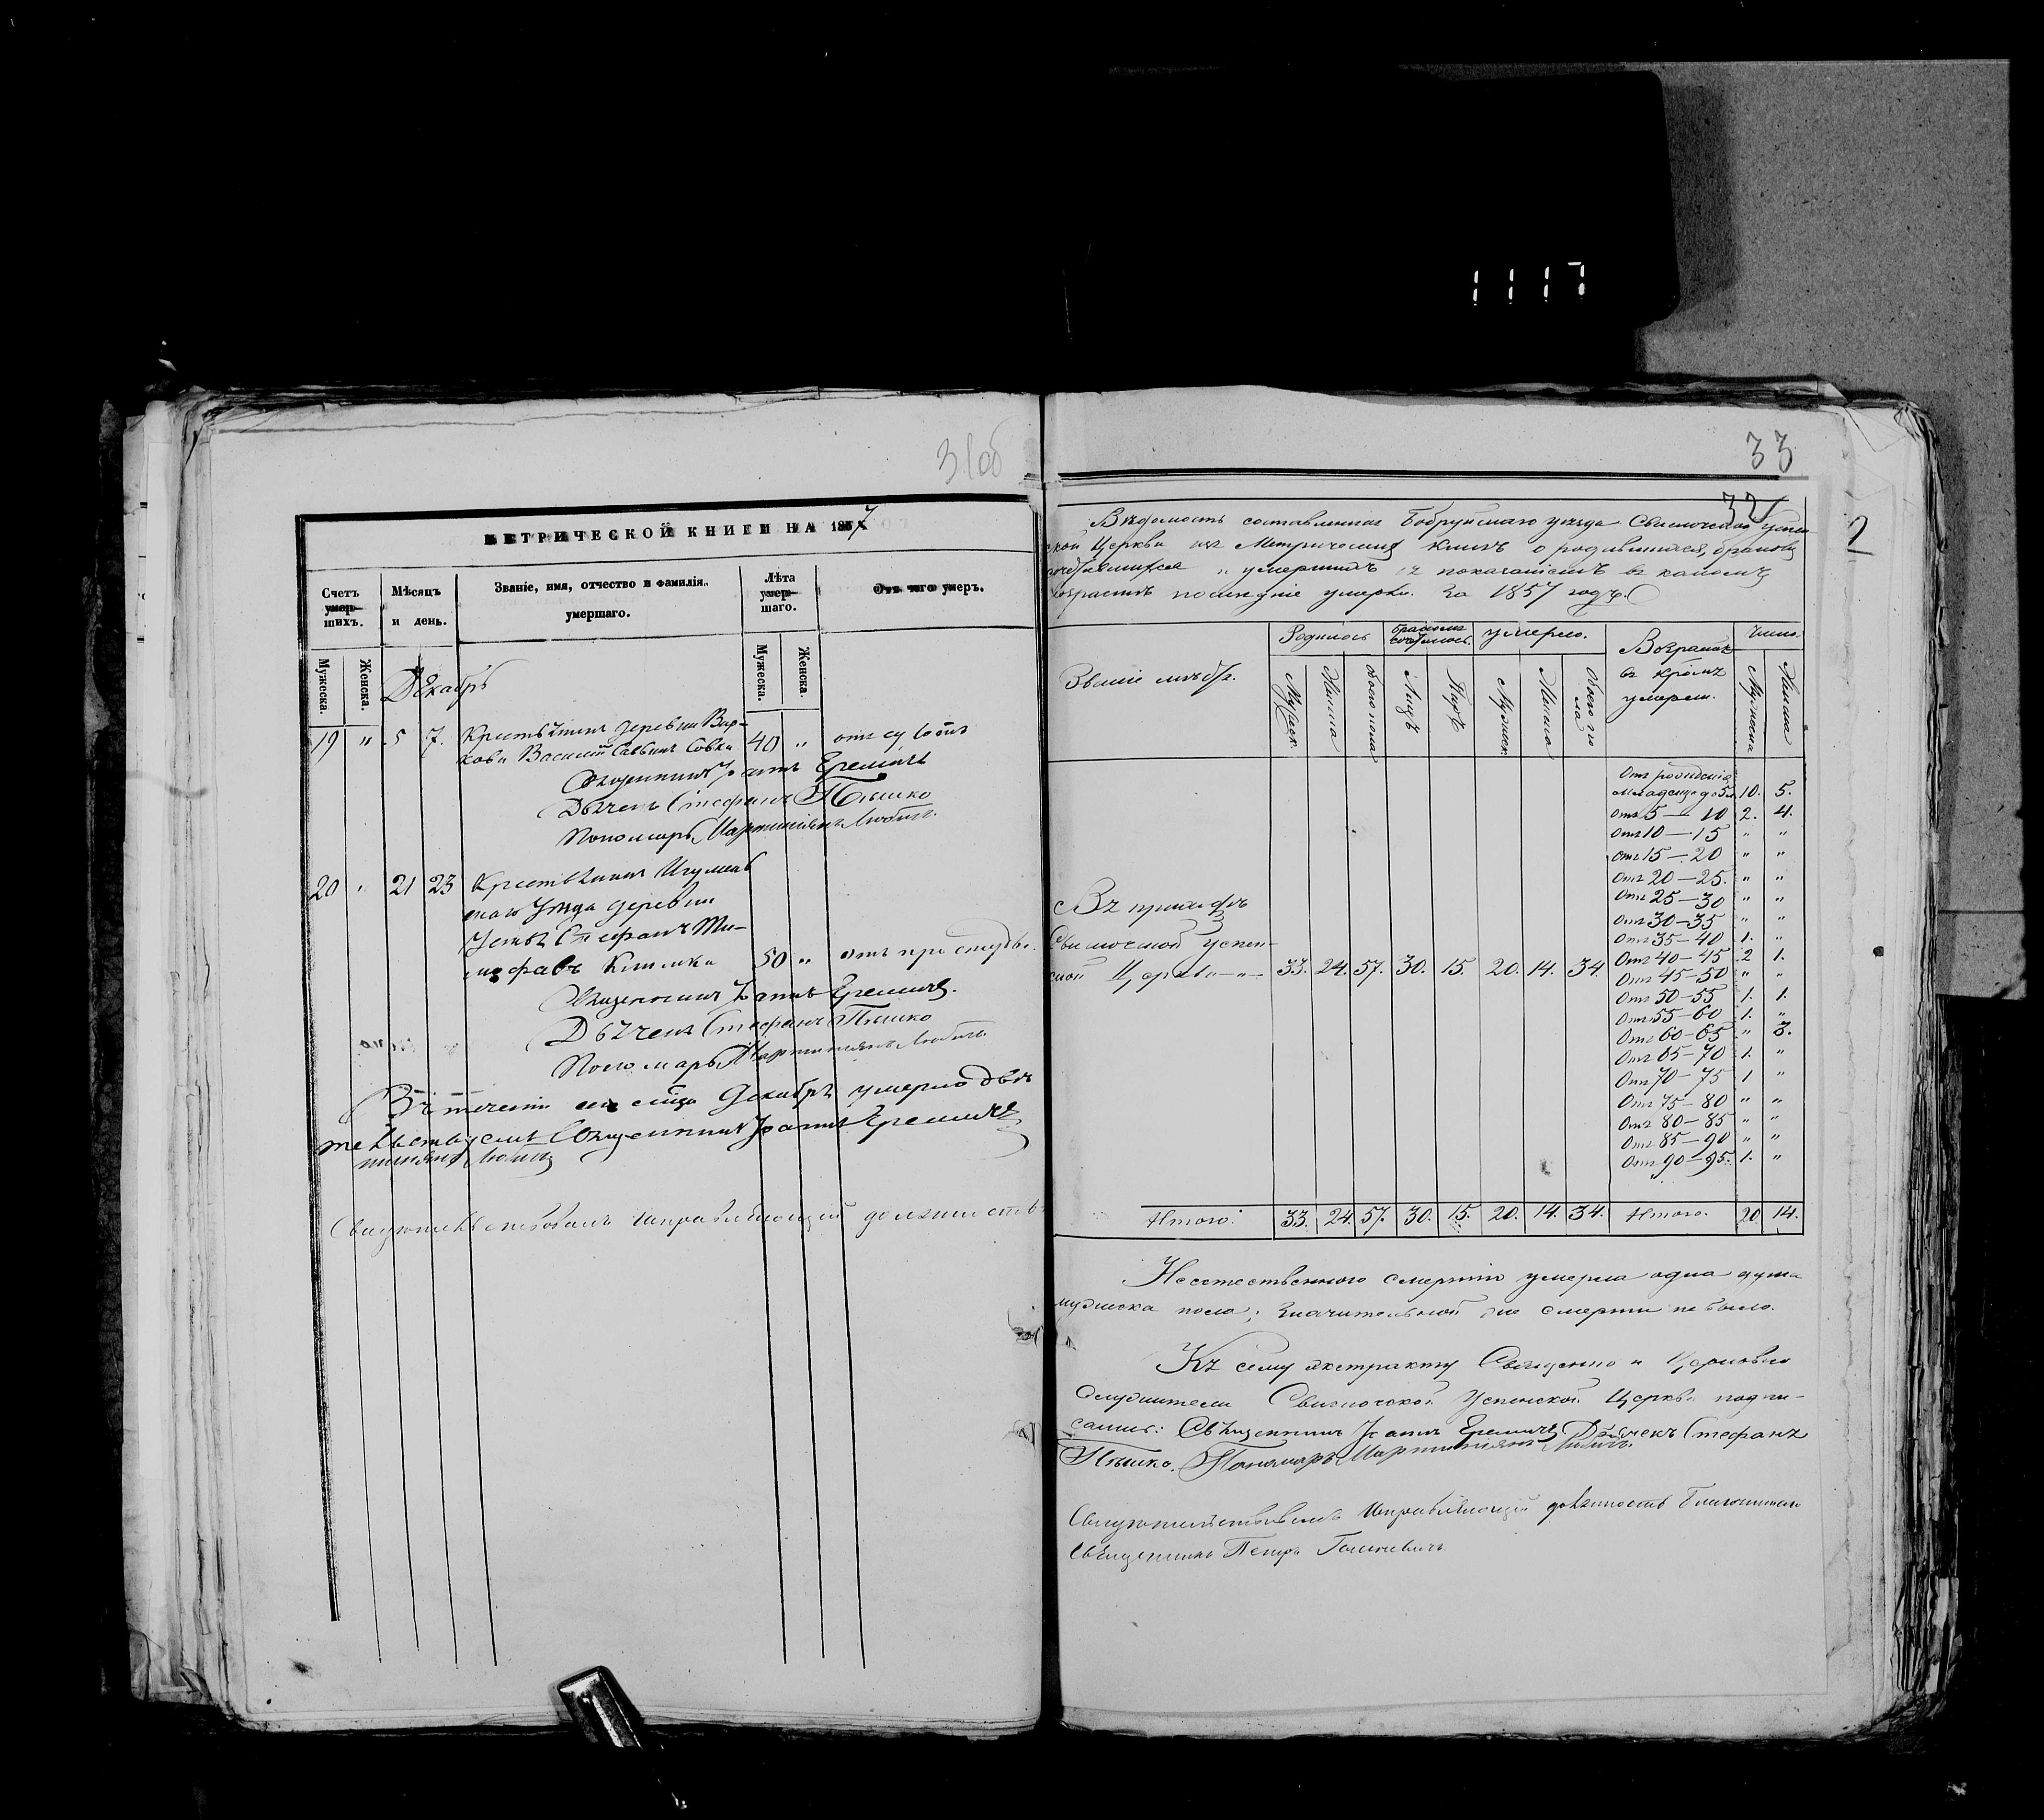 1117
33
МЕТРИЧЕСКОЙ КНИГИ НА 1857
Счетъ умер-шихъ.
Мѣсяцъ и день.
Званіе, имя, отчество и фамилія умершаго.
Лѣта умер-шаго.
Отъ чего умеръ.
Мужеска.
Женска.
Мужеска.
Женска.
Декабрь
19 " 5 7. Крестьянинъ деревни Вар-
кови Василій Савинъ Совка 40 "
Священникъ Іоаннъ Еремичъ
Дьячекъ Стефанъ Пышко
Пономарь Мартиніянъ Любичъ.
20 " 21 23 Крестьянинъ Игумен
скаго Уѣзда деревни
Устья Стефанъ Ти-
мофеевъ Климко 50 " отъ простуды.
Священникъ Іоаннъ Еремичъ.
Дьячекъ Стефанъ Пышко
Пономарь Мартиніянъ Любичъ
Въ теченіи мѣсяца Декабря умерло двѣ
Священникъ Іоаннъ Еремичъ
тиніянъ Любичъ
Свидѣтельствовалъ Исправляющій должность
32
2
Вѣдомость составленная Бобруйскаго уѣзда Свислочской Успен
ской Церкви изъ Метрическихъ книгъ о родившихся, бракомъ
сочетавшихся и умершихъ съ показаніемъ въ какомъ
возрастѣ послѣдніе умерли. За 1857 годъ.
Званіе мѣстъ.
Родилось
Бракомъ сочеталось.
Умерло.
Въ какихъ умерли.
Число.
Мужеск.
Женска
Обоего пола
Лицъ
Паръ
Мужеск.
Женска
Обоего по ла
Мужеска
Женска
Отъ рожденія
Младенцевъ до 5 10. 5.
Отъ 5 — 10 2. 4.
Отъ 10 — 15 " "
Отъ 15 — 20 " "
Отъ 20 — 25. " "
Отъ 25 — 30 " "
Отъ 30 — 35 " "
Отъ 35 — 40 1. "
Отъ 40 — 45 2 1.
Отъ 45 — 50 " "
Отъ 50 — 55 1. 1.
Отъ 55 — 60 1. "
Отъ 60 — 65 " 3.
Отъ 65 — 70 1. "
Отъ 70 — 75 1 "
Отъ 75 — 80 " "
Отъ 80 — 85 " "
Отъ 85 — 90 " "
Отъ 90 — 95. 1. "
Въ приходѣ
Свислочской Успен-
ской Церкви — " — 33. 24. 57. 30. 15. 20. 14. 34.
Итого: 33. 24. 57. 30. 15. 20. 14. 34. Итого. 20. 14.
Несстественного смертію умерла одна душа
мужеска пола; Значительной же смерти не было.
Къ сему экстракту Священно и Церковно
служители Свислочской Успенской Церкви подпи-
сались: Священникъ Іоаннъ Еремичъ Дьячекъ Стефанъ
Пышко. Пономарь Мартиніянъ Любичъ.
Свидѣтельствовалъ Исправляющій должность Благочиннаго
Священникъ Петръ